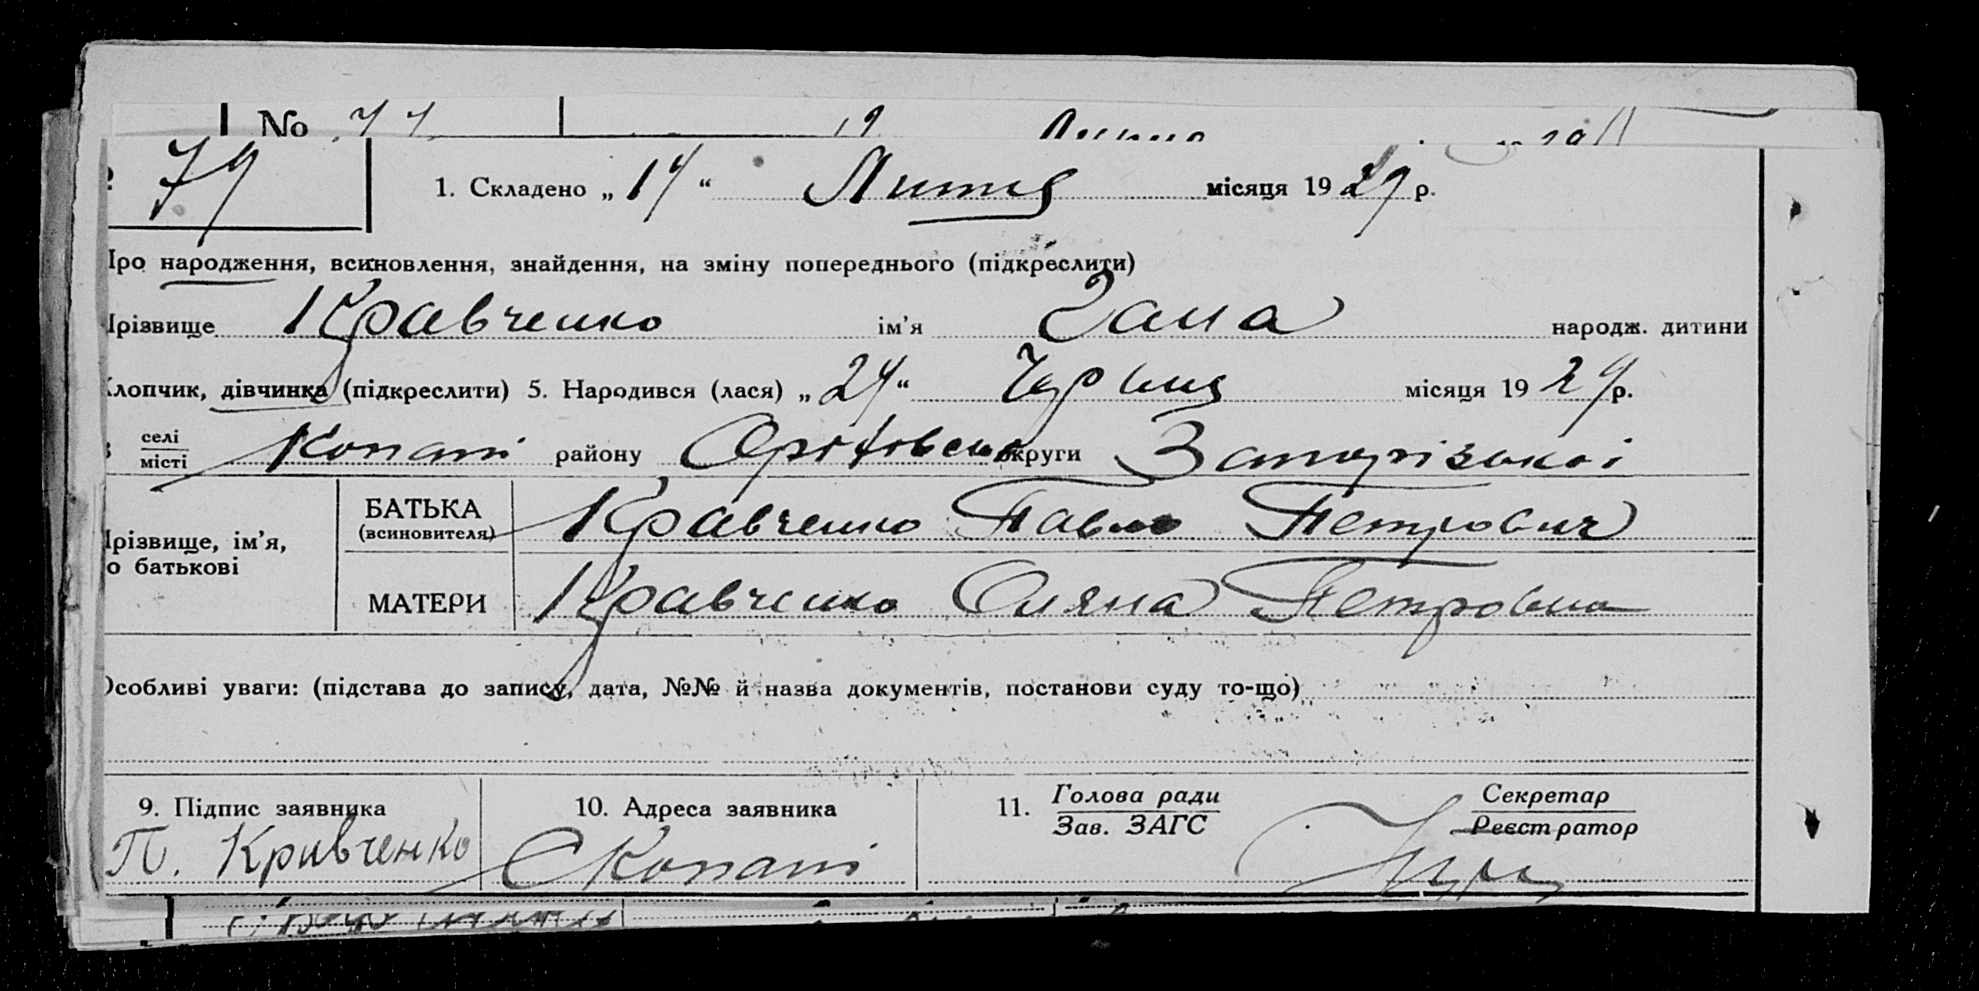 № 77
79
1. Складено „ 14 “ Липня місяця 19 29 р.
Про народження, всиновлення, знайдення, на зміну попереднього (підкреслити)
Прізвище Кравченко ім'я Зана народж. дитини
Хлопчик, дівчинка (підкреслити) 5. Народився (лася) „ 24 “ Червня місяця 19 29 р.
в селі
місті Копані району Оріхівськ округи Запорізької
Прізвище, ім'я,
по батькові
БАТЬКА
(всиновителя)
Кравченко Павло Петрович
МАТЕРИ
Кравченко Оляна Петровна
Особливі уваги: (підстава до запису, дата, №№ й назва документів, постанови суду то-що)
9. Підпис заявника
П. Кривченко
10. Адреса заявника
с Копані
11. Голова ради
Зав. ЗАГС
Секретар
Реєстратор